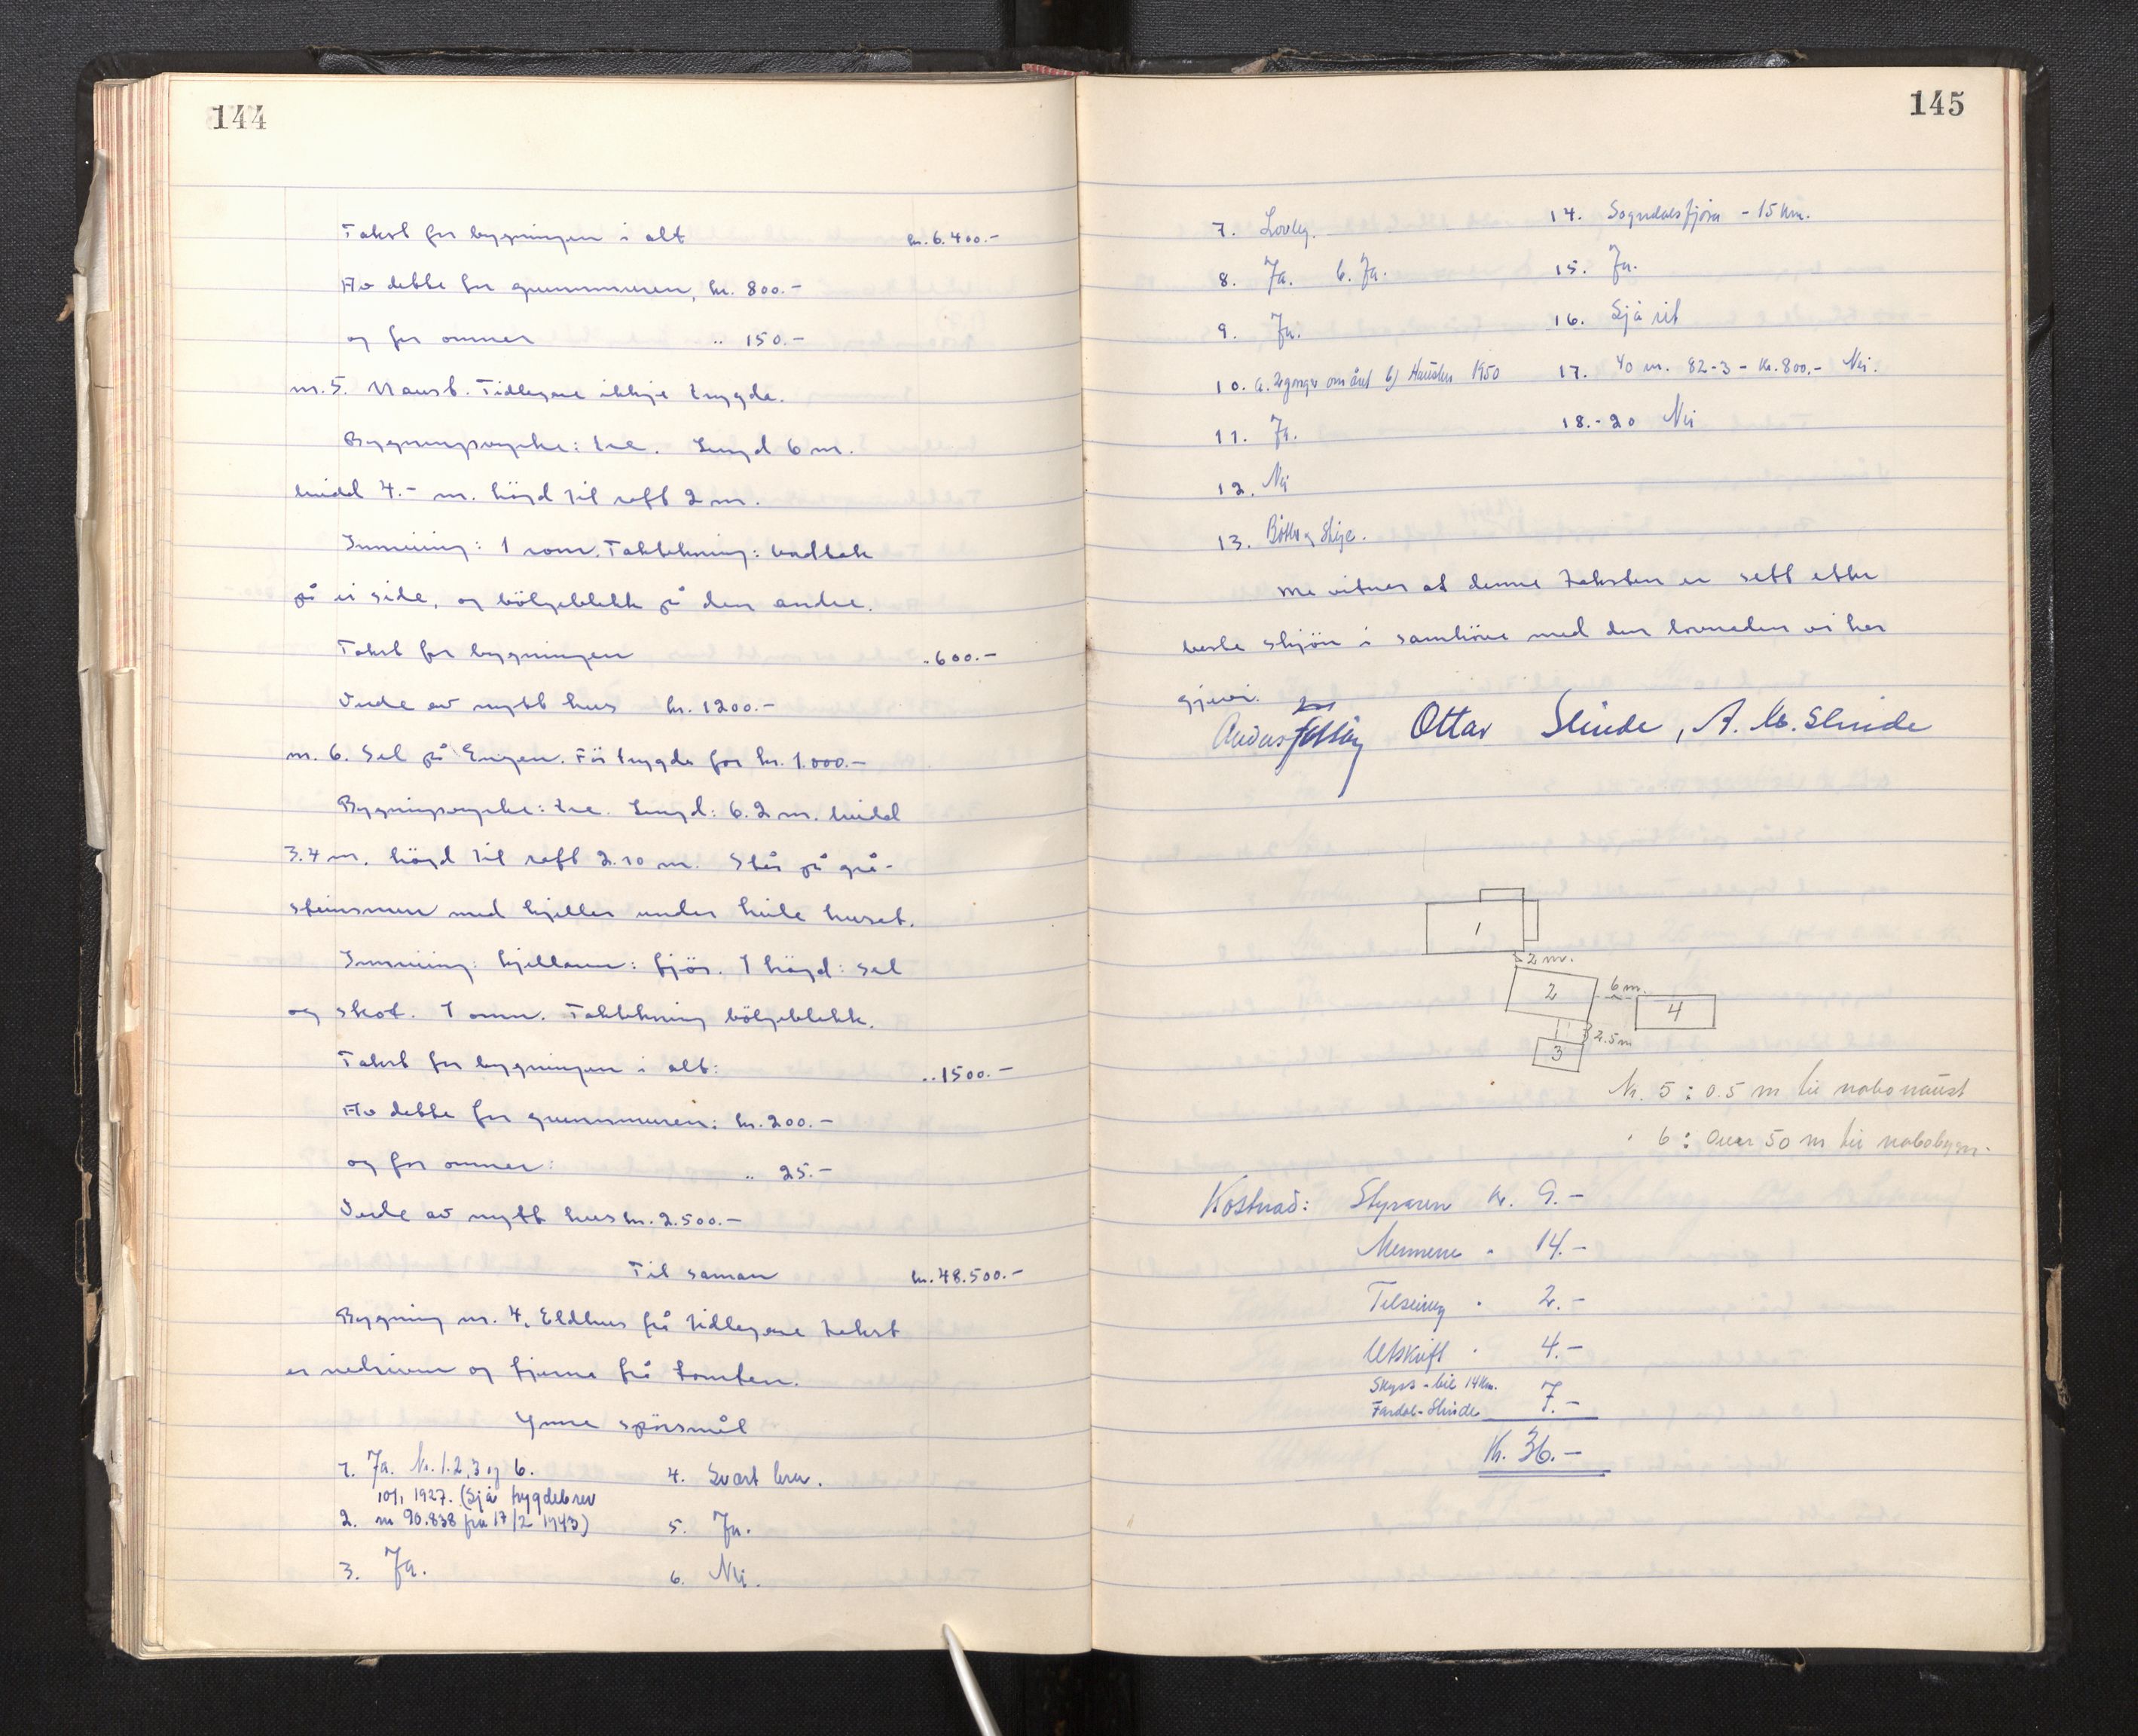 144
Takst for bygningen i alt kr. 6.400.-
Av dette for grunnmuren, kr. 800.-
og for omner " 150.-
nr. 5. Naust. Tidlegare ikkje trygda.
Bygningsmåte: tre. Lengd 6 m.
breidd 4.- m. högd til raft 2 m.
Innreiing: 1 rom. Taktekning: bordtak
på ei side, og bölgeblekk på den andre.
Takst for bygningen " 600.-
Verde av nytt hus kr. 1200.-
nr. 6. Sel på Engen. För trygda for kr. 1.000.-
tre. Lengd: 6.2 m. breidd
3.4 m. högd til raft 2.10 m. Står på grå-
steinsmur med kjeller under heile huset.
Innreiing: kjellaren: fjös. 1 högd: sel
og skot. 1 omn. Taktekning bölgeblekk.
Takst for bygningen i alt: " 1500.-
Av dette for grunnmuren: kr. 200.-
og for omner: " 25.-
Verde av nytt hus kr. 2.500.-
Til saman kr. 48.500.-
Bygning nr. 4, Eldhus frå tidlegare takst
er nedriven og fjerna frå tomten.
Ymse spörsmål
1. Ja. Nr. 1. 2, 3 og 6.
4. Svart brev.
10/1 1927. (Sjå trygdebrev
2. nr 90.838 frå 17/2 1943)
5. Ja.
3. Ja.
6. Nei.
145
7. Lovleg.
14. Sogndalsfjöra - 15 km.
8. Ja. b. Ja.
15. Ja.
9. Ja.
16. Sjå rit
10. a. 2 gonger om året b) Hausten 1950
17. 40 m. 82-3 - Kr. 800.- Nei.
11. Ja.
18.-20 Nei
12. Nei
13. Bötter og Stige.
Me vitner at denne taksten er sett etter
beste skjön i samhöve med den lovnaden vi har
gjevi.
Ottar Slinde, A. M. Slinde
1
2 m.
2
6 m.
4
2.5 m
3
Nr. 5: 0.5 m til nabonaust
" 6: Over 50 m til nabobygn.
Kostnad: Styraren kr. 9.-
Mennene " 14.-
Tilseiing " 2.-
Utskrift " 4.-
Skyss - bil 14 km.
Fardal-Slinde 7.-
Kr. 36.-